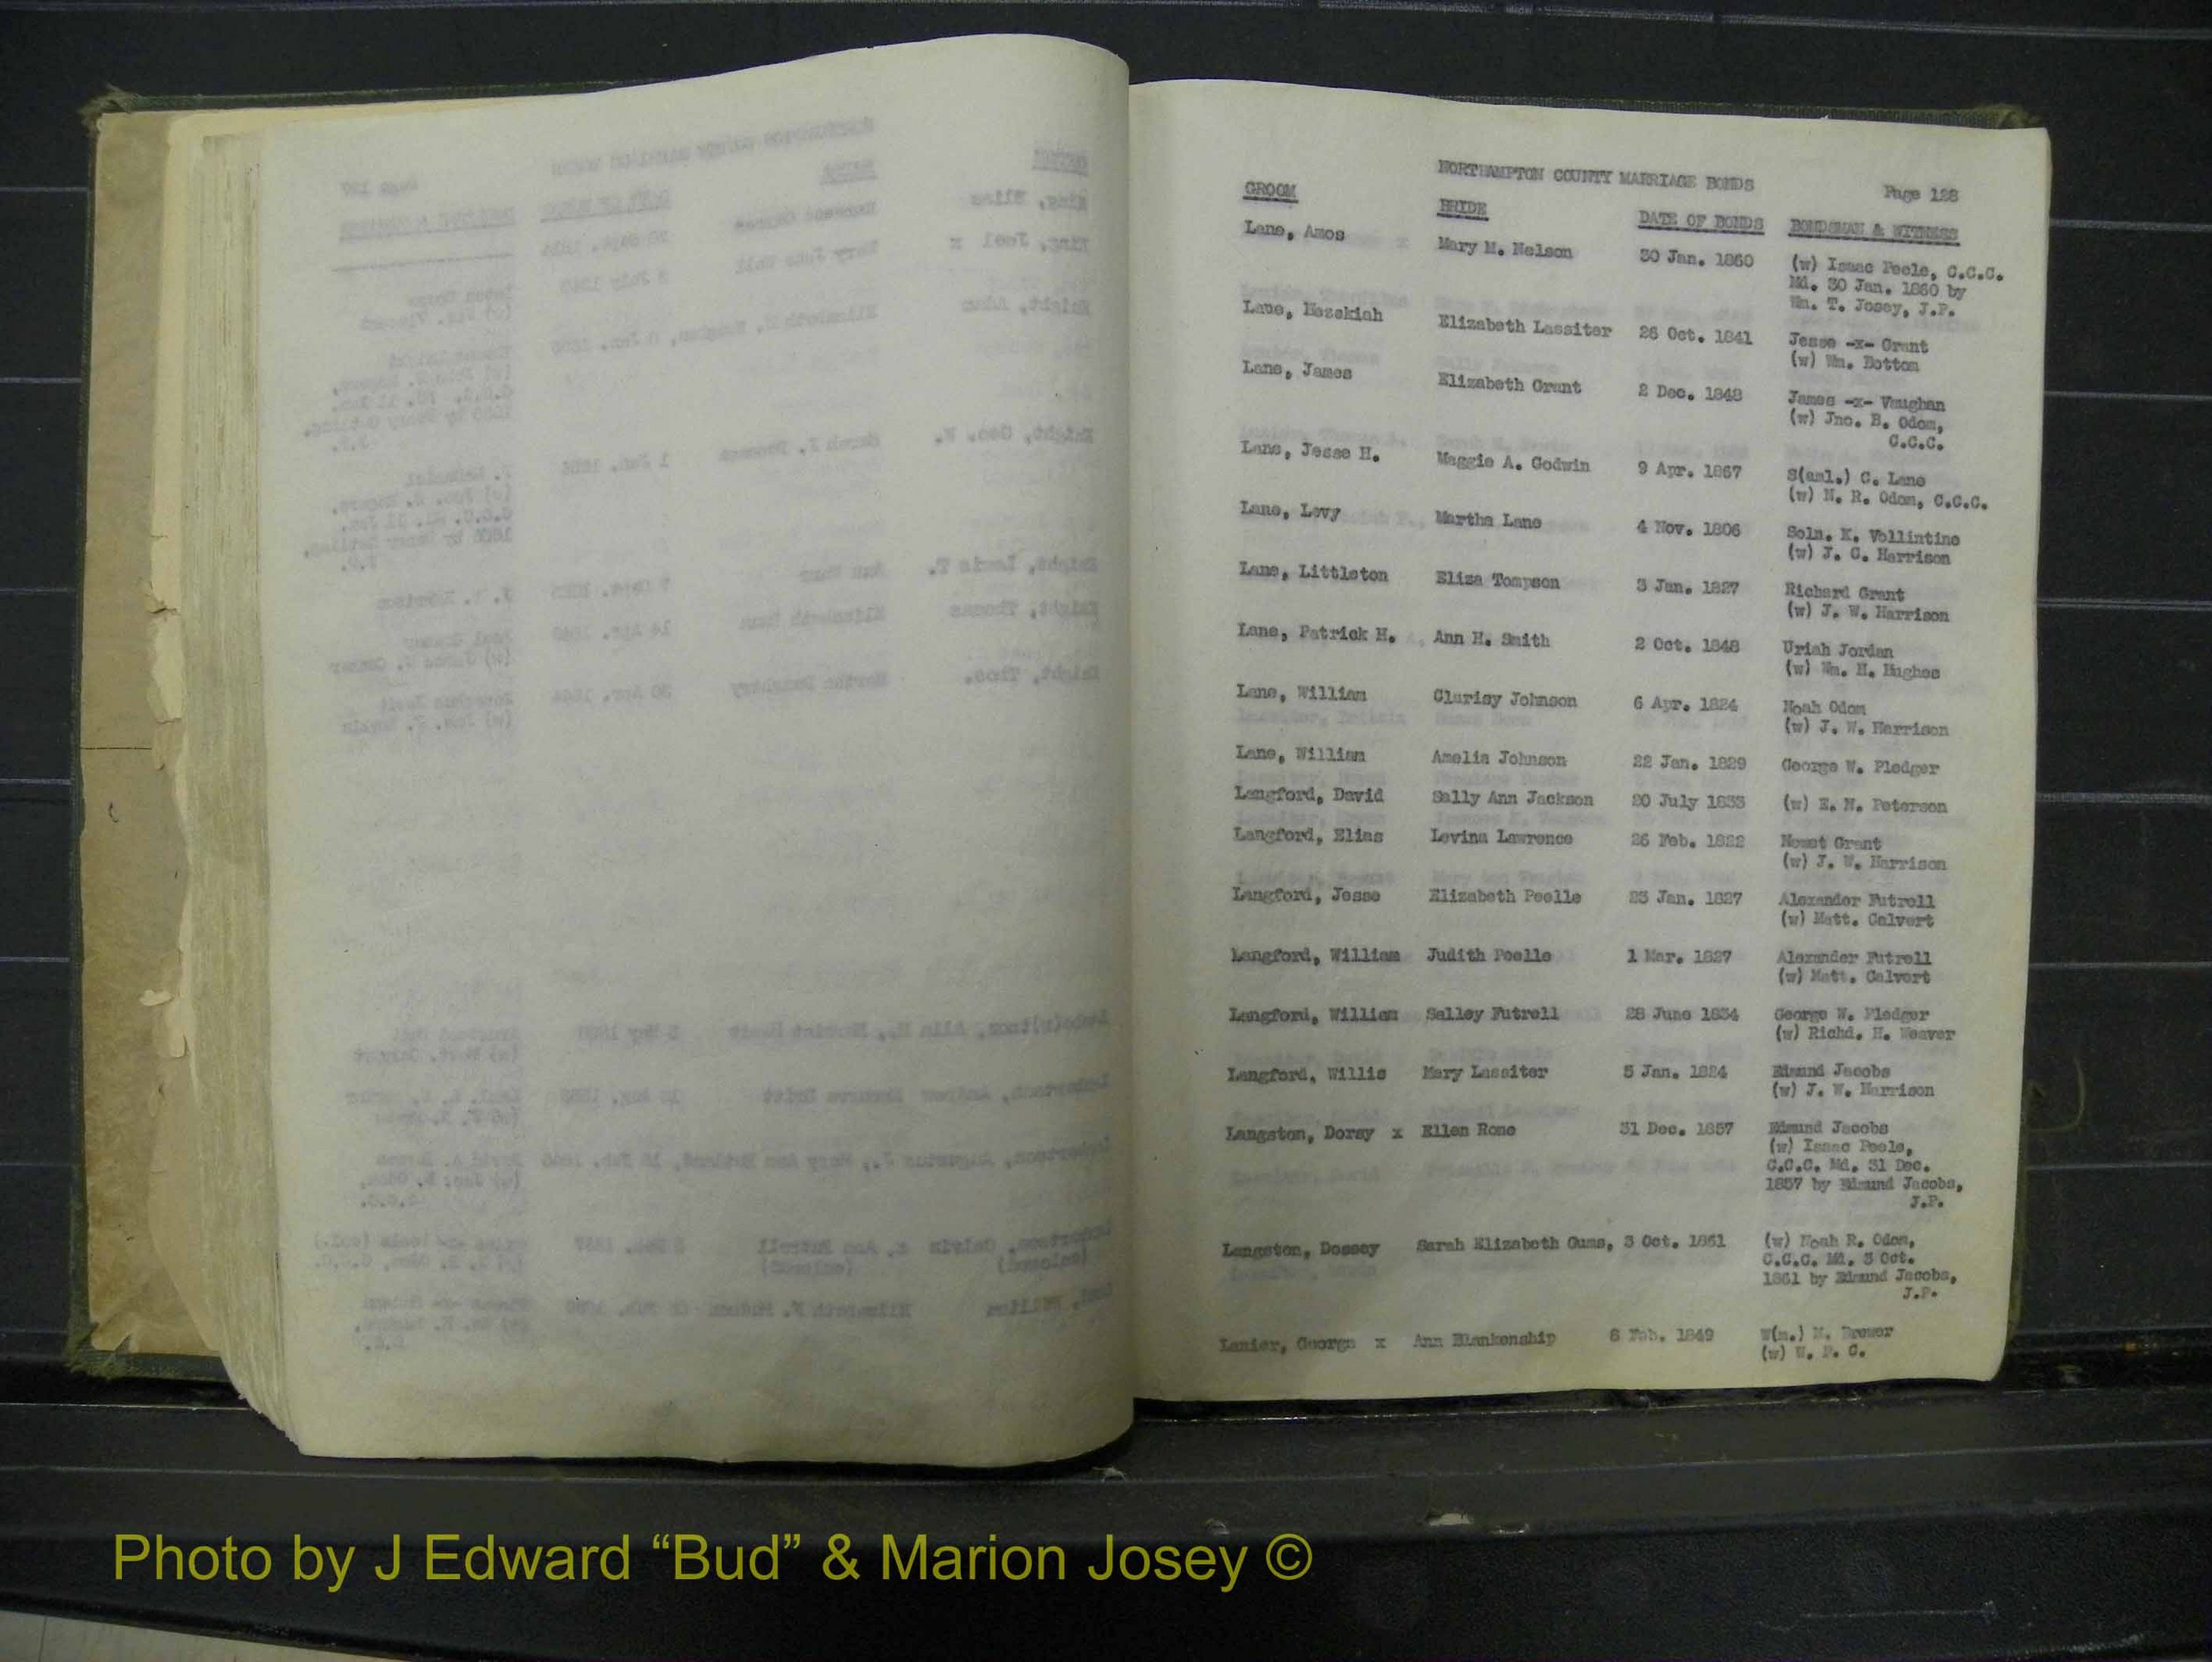 NORTHAMPTON COUNTY MARRIAGE BONDS Page 128
GROOM BRIDE DATE OF BONDS BONDSMAN & WITNESS
Lane, Amos Mary M. Nelson 30 Jan. 1860 (w) Isaac Peele, C.C.C.
Md. 30 Jan. 1860 by
Wm. T. Josey, J.P.
Lane, Hezekiah Elizabeth Lassiter 26 Oct. 1841 Jesse -x- Grant
(w) Wm. Bottom
Lane, James Elizabeth Grant 2 Dec. 1848 James -x- Vaughan
(w) Jno. B. Odom,
C.C.C.
Lane, Jesse H. Maggie A. Godwin 9 Apr. 1867 S(aml.) C. Lane
(w) N. R. Odom, C.C.C.
Lane, Levy Martha Lane 4 Nov. 1806 Soln. K. Vollintine
(w) J. C. Harrison
Lane, Littleton Eliza Tompson 3 Jan. 1827 Richard Grant
(w) J. W. Harrison
Lane, Patrick H. Ann H. Smith 2 Oct. 1848 Uriah Jordan
(w) Wm. H. Hughes
Lane, William Clarisy Johnson 6 Apr. 1824 Noah Odom
(w) J. W. Harrison
Lane, William Amelia Johnson 22 Jan. 1829 George W. Pledger
Langford, David Sally Ann Jackson 20 July 1833 (w) E. N. Peterson
Langford, Elias Levina Lawrence 26 Feb. 1822 Grant
(w) J. W. Harrison
Langford, Jesse Elizabeth Peelle 23 Jan. 1827 Alexander Futrell
(w) Matt. Calvert
Langford, William Judith Peelle 1 Mar. 1827 Alexander Futrell
(w) Matt. Calvert
Langford, William Salley Futrell 28 June 1834 George W. Pledger
(w) Richd. H. Weaver
Langford, Willis Mary Lassiter 5 Jan. 1824 Edmund Jacobs
(w) J. W. Harrison
Langston, Dorsy x Ellen Rone 31 Dec. 1857 Edmund Jacobs
(w) Isaac Peele,
C.C.C. Md. 31 Dec.
1857 by Edmund Jacobs,
J.P.
Langston, Dossey Sarah Elizabeth Gums, 3 Oct. 1861 (w) Noah R. Odom,
C.C.C. Md. 3 Oct.
1861 by Edmund Jacobs,
J.P.
Lanier, George x Ann Blankenship 6 Feb. 1849 W(m.) M. Brewer
(w) W. P. C.
Photo by J Edward “Bud” & Marion Josey ©